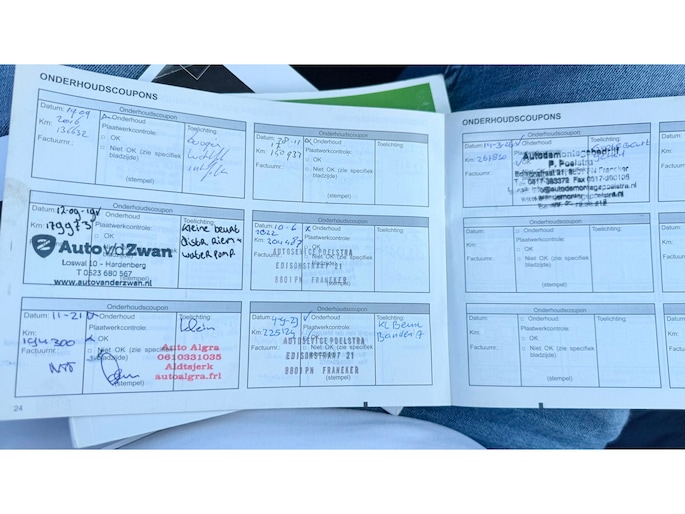 ONDERHOUDSCOUPONS
Onderhoudscoupon
Datum: 19.09
2016
Km: 136632
Factuurnr.:
Onderhoud
Plaatwerkcontrole:
OK
Niet OK (zie specifiek
bladzijde)
(stempel)
Toelichting:
Onderhoudscoupon
Datum:
Km: 150.937
Factuurnr.:
Onderhoud
Plaatwerkcontrole:
OK
Niet OK (zie specifiek
bladzijde)
(stempel)
Toelichting:
Onderhoudscoupon
Datum: 12-09-19
Km: 179973
Toelichting:
kleine beurt
distr riem +
waterpomp
Auto v/d Zwan
Loswal 10 - Hardenberg
T 0523 680 567
www.autovanderzwan.nl
Onderhoudscoupon
Datum: 10-6
2022
Km: 204487
Factuurnr.:
Onderhoud
Plaatwerkcontrole:
OK
Niet OK (zie specifiek
bladzijde)
Toelichting:
AUTOSERVICE POELSTRA
EDISONSTRAAT 21
8801PN FRANEKER
Onderhoudscoupon
Datum: 11-21
Km:
194300
Factuurnr.:
Onderhoud
Plaatwerkcontrole:
OK
Niet OK (zie specifiek
bladzijde)
(stempel)
Toelichting:
klein
Auto Algra
0610331035
Aldtsjerk
autoalgra.frl
Onderhoudscoupon
Datum: 4-9-23
Km: 225124
Factuurnr.:
Onderhoud
Plaatwerkcontrole:
OK
Niet OK (zie specifiek
bladzijde)
(stempel)
Toelichting:
KL Beurt
Banden
AUTOSERVICE POELSTRA
EDISONSTRAAT 21
8801PN FRANEKER
24
ONDERHOUDSCOUPONS
Onderhoudscoupon
Datum:
Km:
Factuurnr.:
Autodemontagebedrijf
P. Poelstra
Edisonstraat 21,
Tel. 0517-393372 Fax 0517-390106
info@autodemontagepoelstra.nl
Onderhoudscoupon
Datum:
Km:
Factuurnr.:
Onderhoud
Plaatwerkcontrole:
OK
Niet OK (zie specifiek
bladzijde)
(stempel)
Toelichting:
Onderhoudscoupon
Datum:
Km:
Factuurnr.:
Onderhoud
Plaatwerkcontrole:
OK
Niet OK (zie specifiek
bladzijde)
(stempel)
Toelichting: